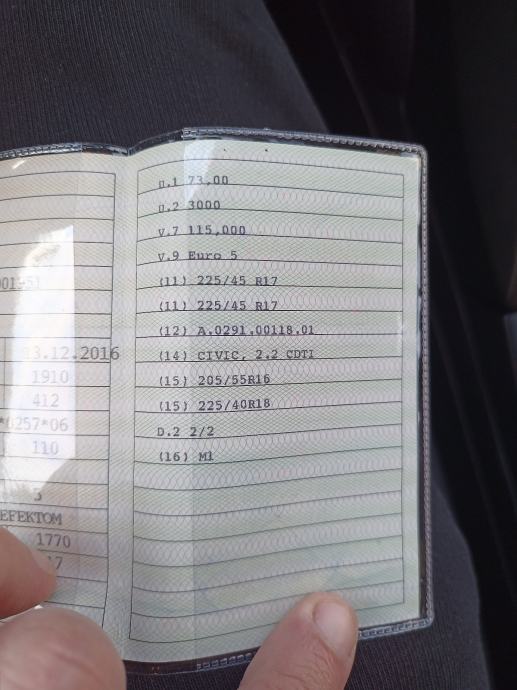 13.12.2016
1910
412
0257*06
110
3
EFEKTOM
1770
17
U.1 73,00
U.2 3000
V.7 115,000
V.9 Euro 5
(11) 225/45 R17
(11) 225/45 R17
(12) A.0291.00118.01
(14) CIVIC, 2.2 CDTI
(15) 205/55R16
(15) 225/40R18
D.2 2/2
(16) M1